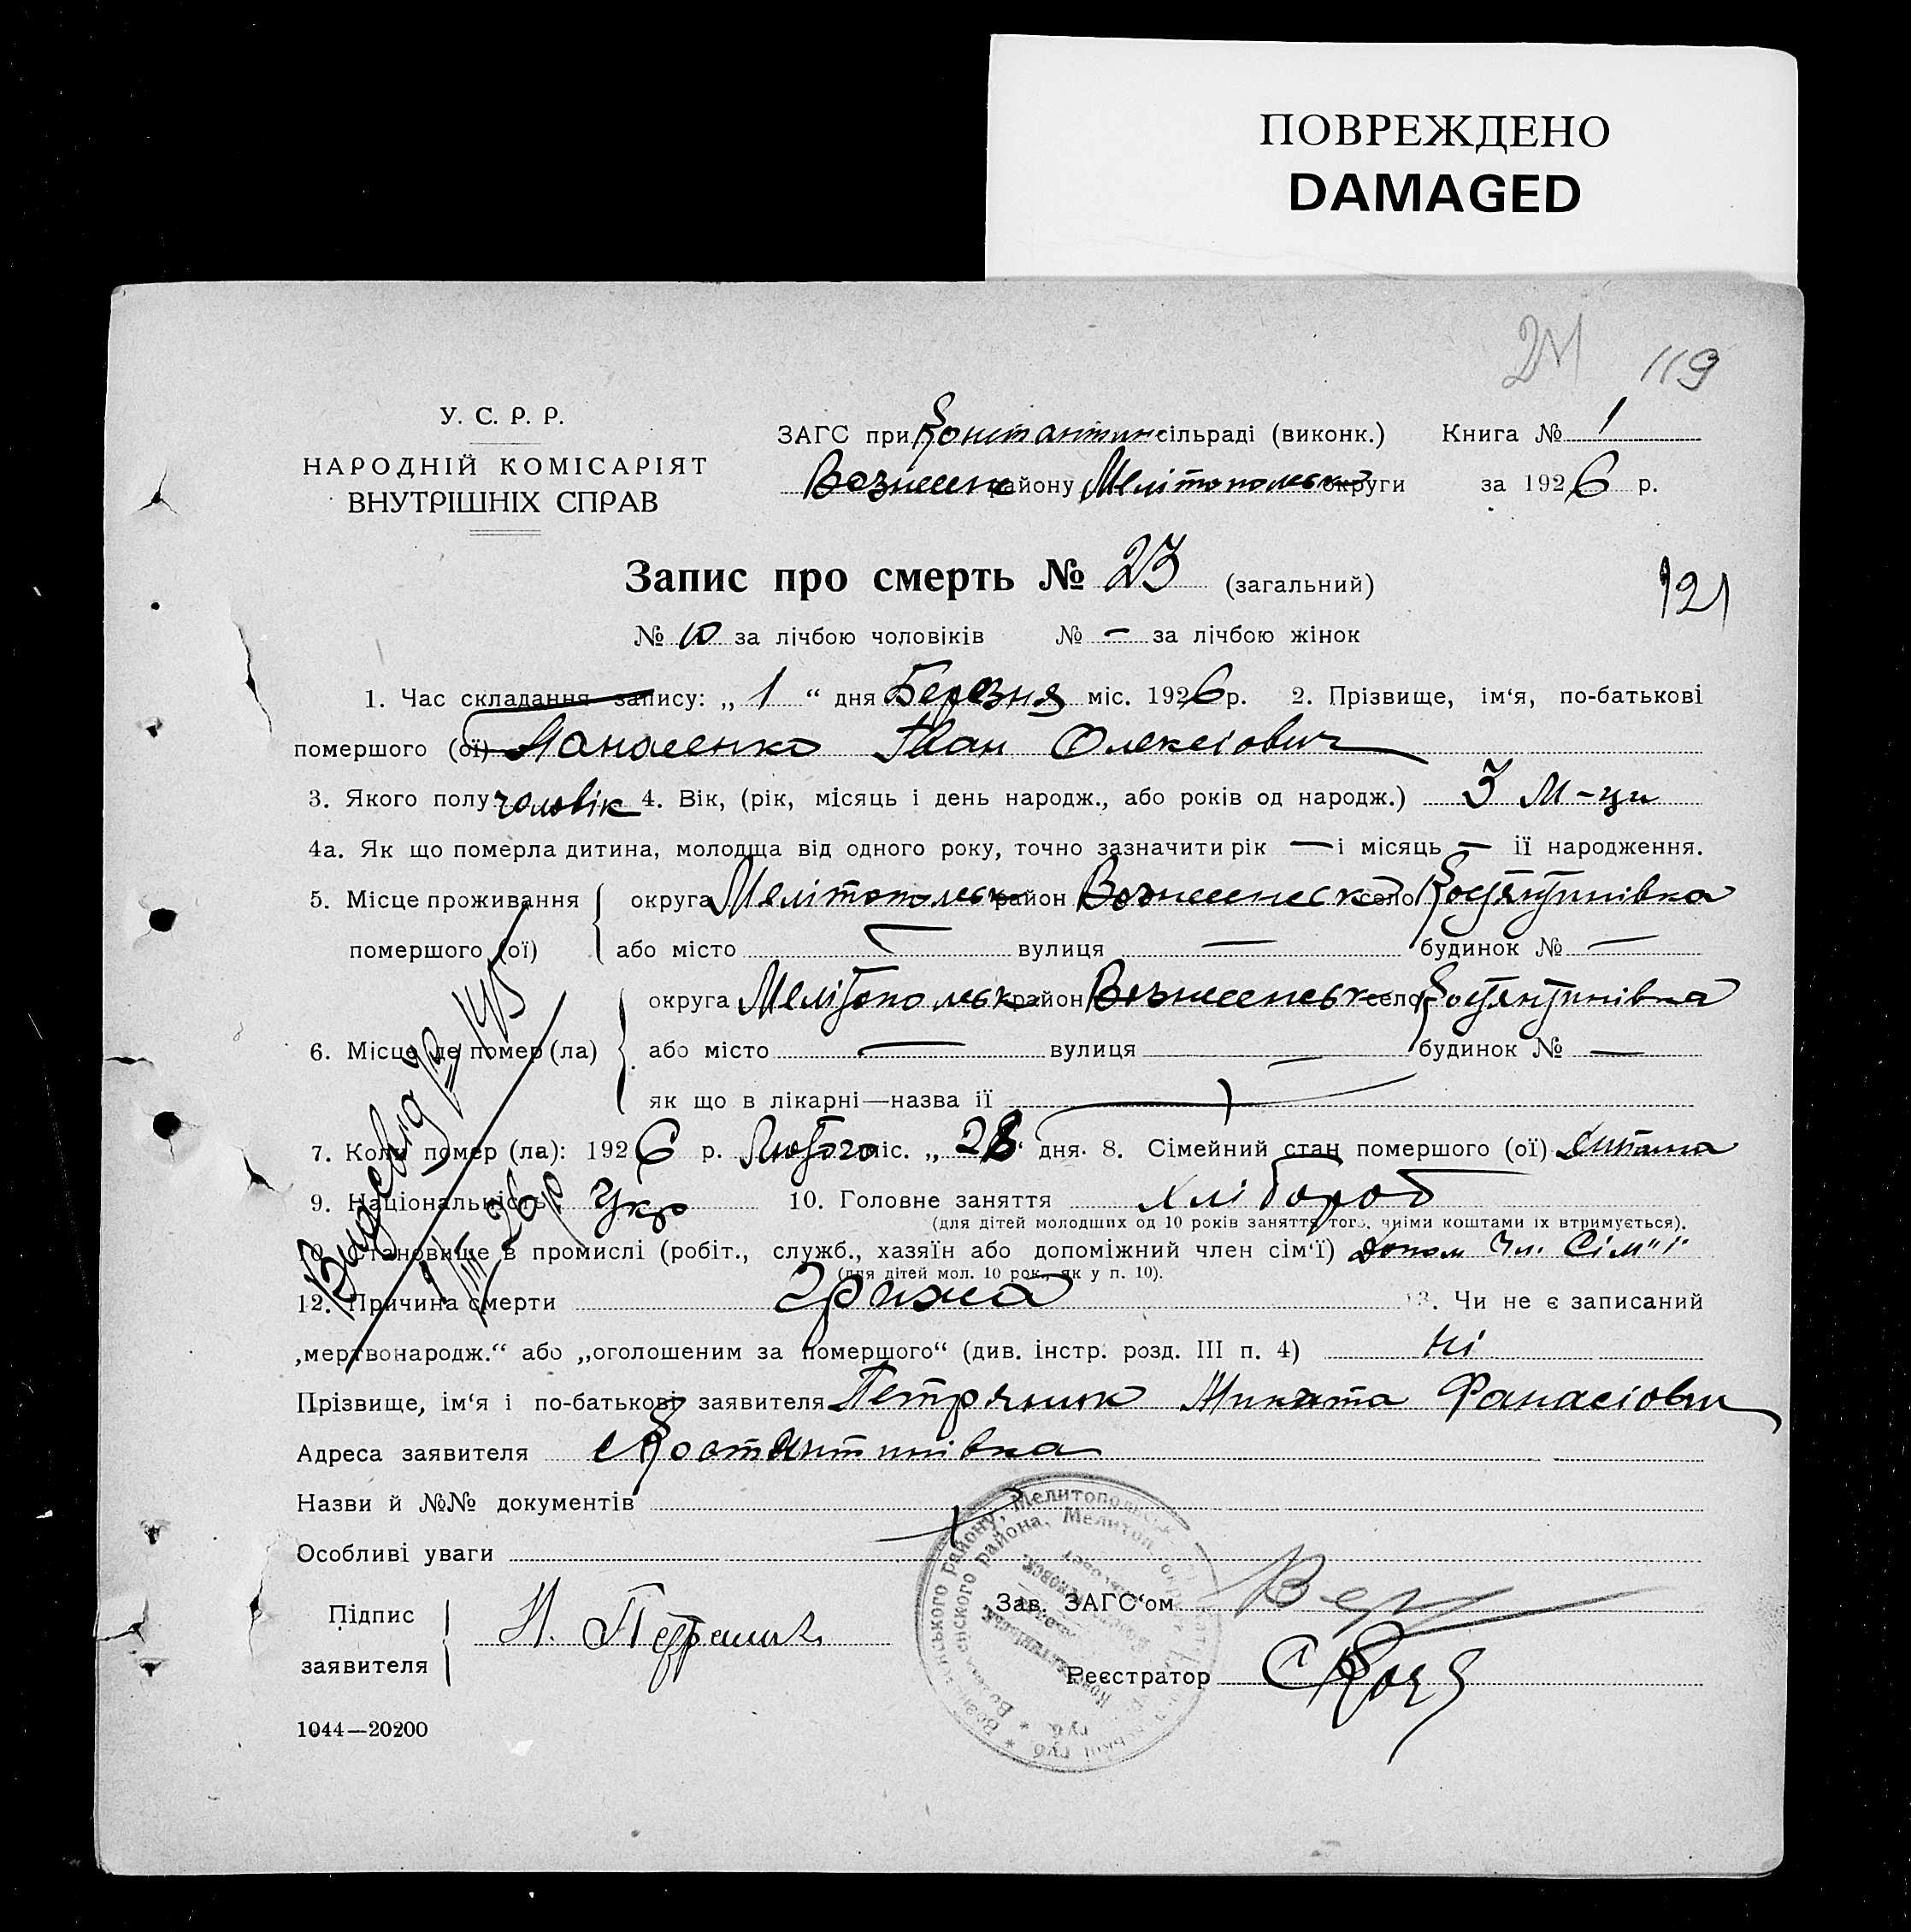 ПОВРЕЖДЕНО
DAMAGED
119
У. С. Р. Р.
НАРОДНІЙ КОМІСАРІЯТ
ВНУТРІШНІХ СПРАВ
ЗАГС при Константин сільраді (виконк.) Книга № 1
Вознесенс району Мелітопольсько округи за 1926 р.
Запис про смерть № 23 (загальний)
121
№ 10 за лічбою чоловіків № — за лічбою жінок
1. Час складання запису: „ 1 “ дня Березня міс. 1926 р. 2. Прізвище, ім‘я, по-батькові
помершого (ої) Іван Олексієвич
3. Якого полу чоловік 4. Вік, (рік, місяць і день народж., або років од народж.) 3 м-ци
4а. Як що померла дитина, молодща від одного року, точно зазначити рік — і місяць — її народження.
5. Місце проживання округа Мелітопольськ район Вознесенськ село Костянтинівка
помершого (ої) або місто — вулиця — будинок № —
округа Мелітопольськ район Вознесенськ село Костянтинівка
6. Місце де помер (ла) або місто — вулиця — будинок № —
як що в лікарні—назва її
7. Коли помер (ла): 1926 р. Лютого міс. „ 28 “ дня. 8. Сімейний стан помершого (ої) дитина
9. Національність Укр 10. Головне заняття хлібороб
(для дітей молодших од 10 років заняття того, чиїми коштами їх втримується).
Становище в промислі (робіт., служб., хазяїн або допоміжний член сім‘ї) допом чл. сім"ї
(для дітей мол. 10 рок., як у п. 10).
12. Причина смерти Грижа 13. Чи не є записаний
„мертвонародж.“ або „оголошеним за помершого“ (див. інстр. розд. III п. 4) ні
Прізвище, ім‘я і по-батькові заявителя Микита
Адреса заявителя с Костянтинівка
Назви й №№ документів
Особливі уваги
Підпис
заявителя
Зав. ЗАГС‘ом
Реєстратор
1044—20200